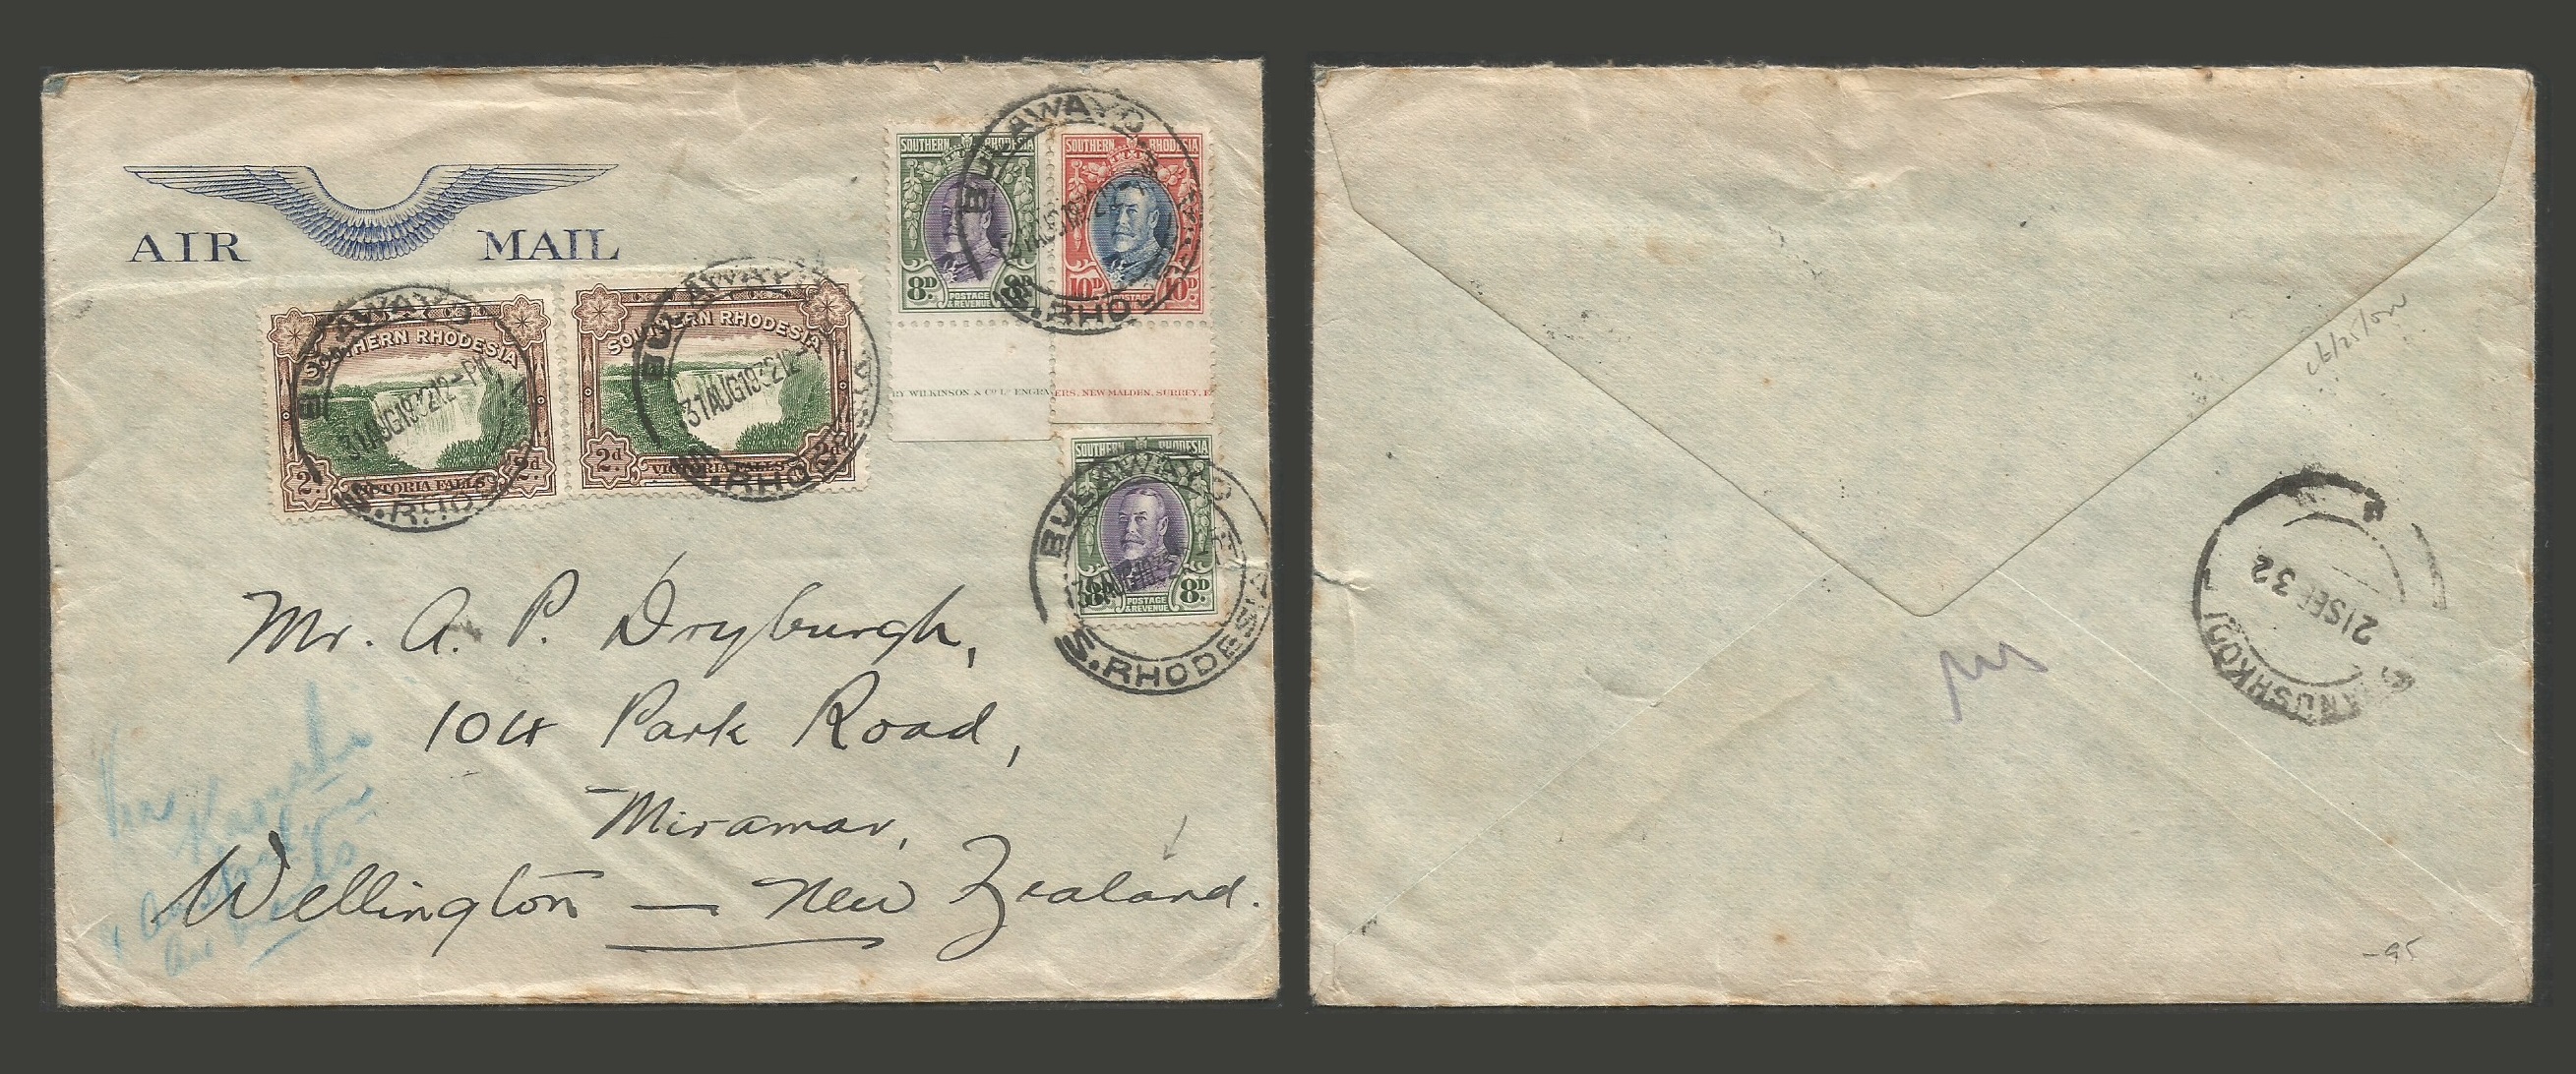 AIR MAIL
SOUTHERN RHODESIA
8D 8D
POSTAGE & REVENUE
SOUTHERN RHODESIA
10D 10D
POSTAGE
BULAWAYO
S. RHO
RY WILKINSON & Co Ld ENGRA
ERS, NEW MALDEN, SURREY, E
SOUTHERN RHODESIA
2d 2d
VICTORIA FALLS
BULAWAYO
31 AUG 1932 12-PM
S. RHO
SOUTHERN RHODESIA
2d 2d
VICTORIA FALLS
BULAWAYO
31 AUG 1932 12-
S. RHODESIA
SOUTHERN RHODESIA
8D 8D
POSTAGE & REVENUE
BULAWAYO
31 AUG 193
S. RHODESIA
Mr. A. P. Dryburgh,
104 Park Road,
Miramar,
Wellington — New Zealand.
21 SEP 32
ANUSHKODI
-95